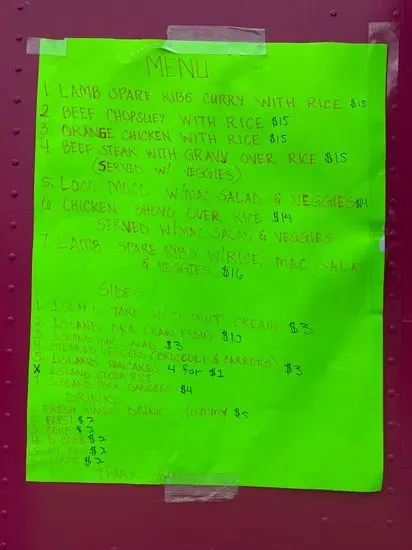 MENU
1. LAMB SPARE RIBS CURRY WITH RICE $15
2 BEEF CHOPSUEY WITH RICE $15
3. ORANGE CHICKEN WITH RICE $15
4 BEEF STEAK WITH GRAVY OVER RICE $15
(SERVED W/ VEGGIES)
5. LOCO MOCO W/MAC SALAD & VEGGIES $14
6 CHICKEN SHOYO OVER RICE $14
SERVED W/MAC SALAD & VEGGIES
7. LAMB SPARE RIBS W/RICE, MAC SALA
& VEGGIES $16
SIDES
1. ISLAND TARO W/ CREAM $3
2. ISLAND OKA (RAW FISH) $10
3. ISLAND MAC SALAD $3
4 STEAMED VEGGIES (BROCCOLI & CARROTS) $3
5. ISLAND PANCAKES 4 for $1
X ISLAND COCOA RICE
7 ISLAND PORK $4
DRINKS
1. FRESH MANGO DRINK YUMMY $5
2. PEPSI $2
3 COKE $2
4 D COKE $2
$2
$2
THANK YOU